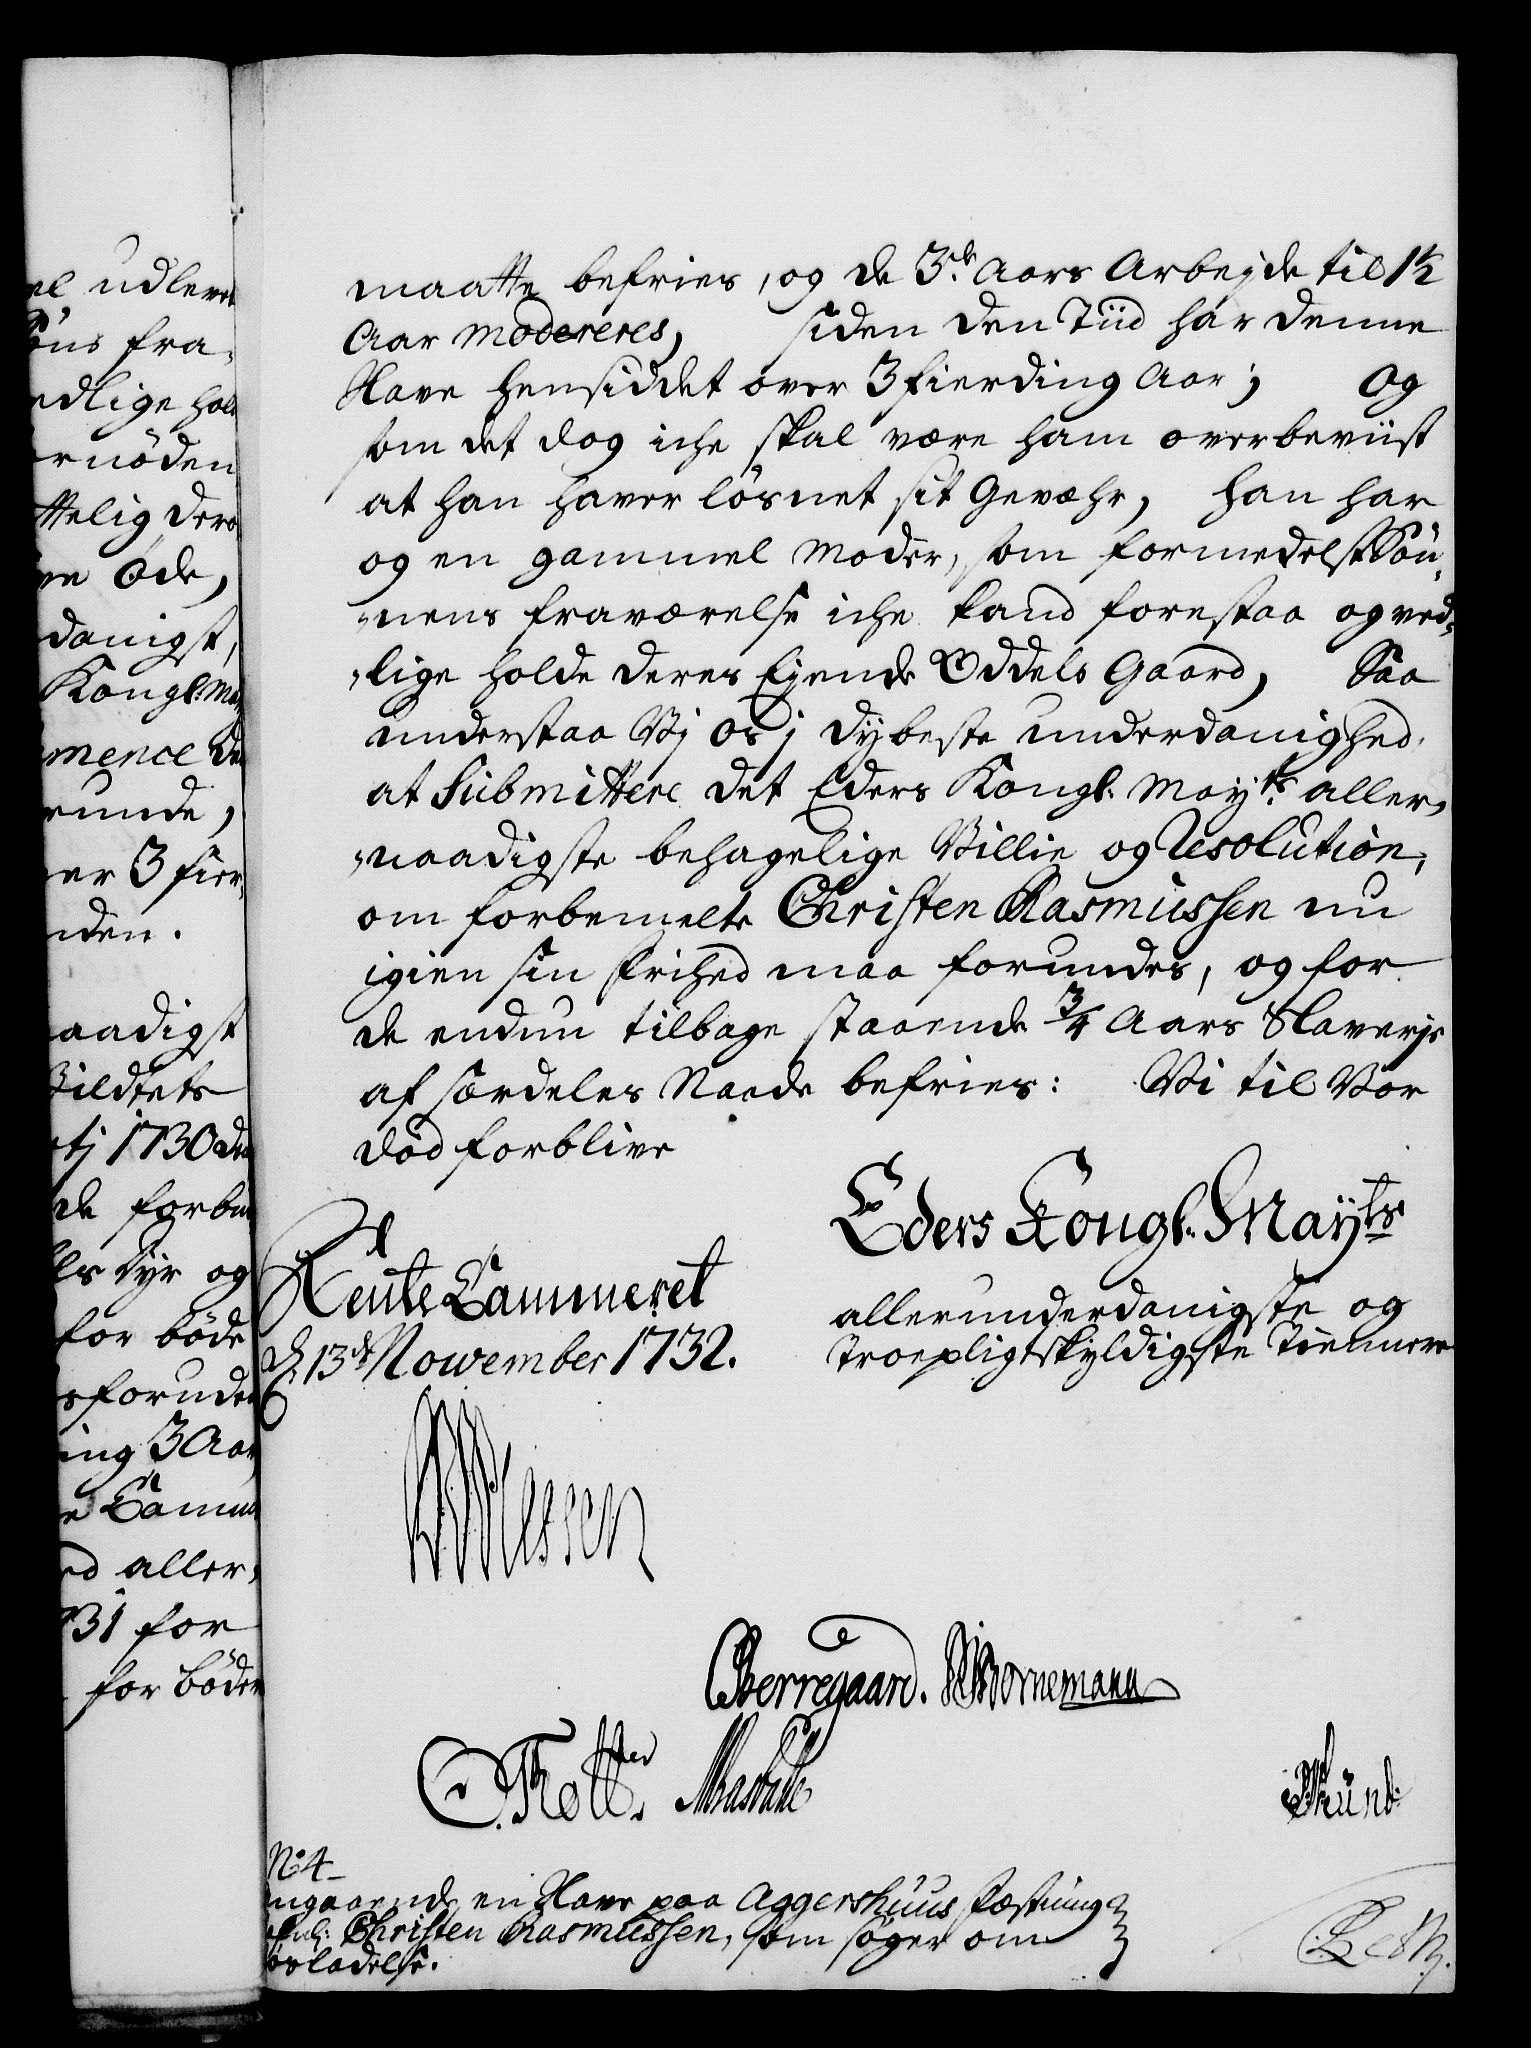 el udlever
öns fra,
edlige hol
rnöden
ttelig der
re Øde,
danigst,
Kongl: May
mence de
runde,
er 3 fier
nden.
aadigst
Bildtets
tj 1730 de
de forbe
ls Dyr og
for böde
sforuden
ing 3 Aar
e Cammer
ed aller,
731 for
for böder
maatte befries, og de 3de Aars Arbejde til 1½
Aar modereres, siden den Tiid har denne
Slave hensiddet over 3 fierding Aar; Og
som det dog iche skal være ham overbeviist
at han haver lösnet sit Gevæhr, han har
og en gammel Moder, som formedelst Sön,
„nens fraværelse iche kand forestaa og ved,
„lige holde deres Ejende Oddels Gaard, Saa
understaa Vj os j dybeste underdanighed,
at Submittere det Eders Kongl: Mayts aller,
„naadigste behagelige Villie og Resolution,
om forbemelte Christen Rasmussen nu
igien sin Frihed maa forundes, og for
de endnu tilbage staaende ¾ Aars Slaverje
af særdeles Naade befries: Vi til Vor
död forblive
Eders Kongl. Mayts
Rente Cammeret
d. 13de November 1732.
allerunderdanigste og
Troepligtskyldigste Tiennere
Plessen
CBerregaard. Bornemann
ngaaende en Slave paa Aggershuus Fæstning
Christen Rasmussen, som søger om
ösladelse.
No 4